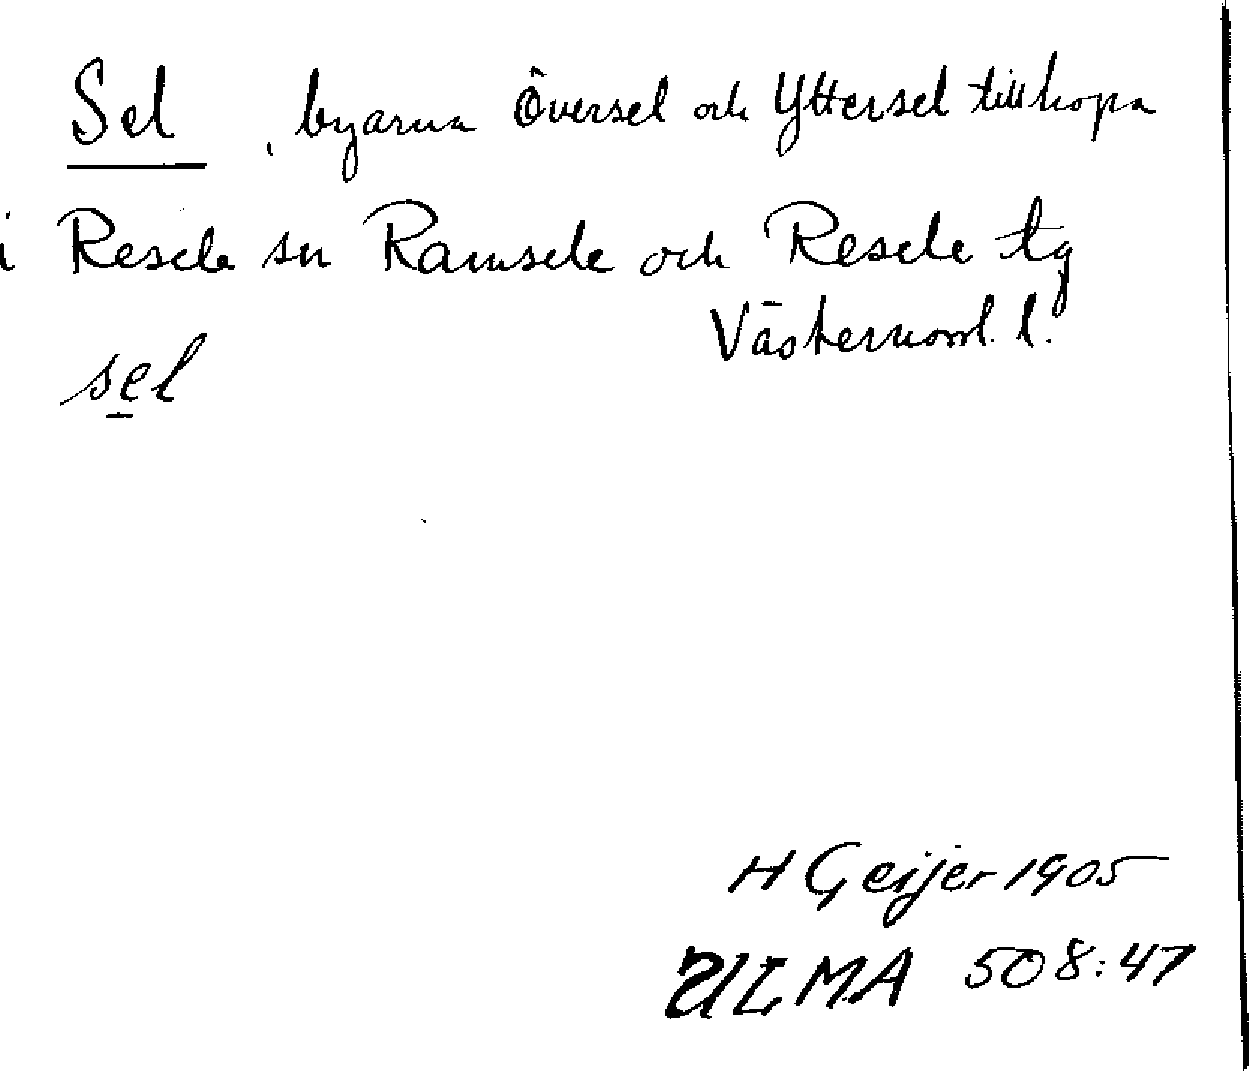 Sel , byarna Översel och Yttersel tillhopa
i Resele sn Ramsele och Resele tg
Västernorrl. l.
sel
H Geijer 1905
ULMA 508:47